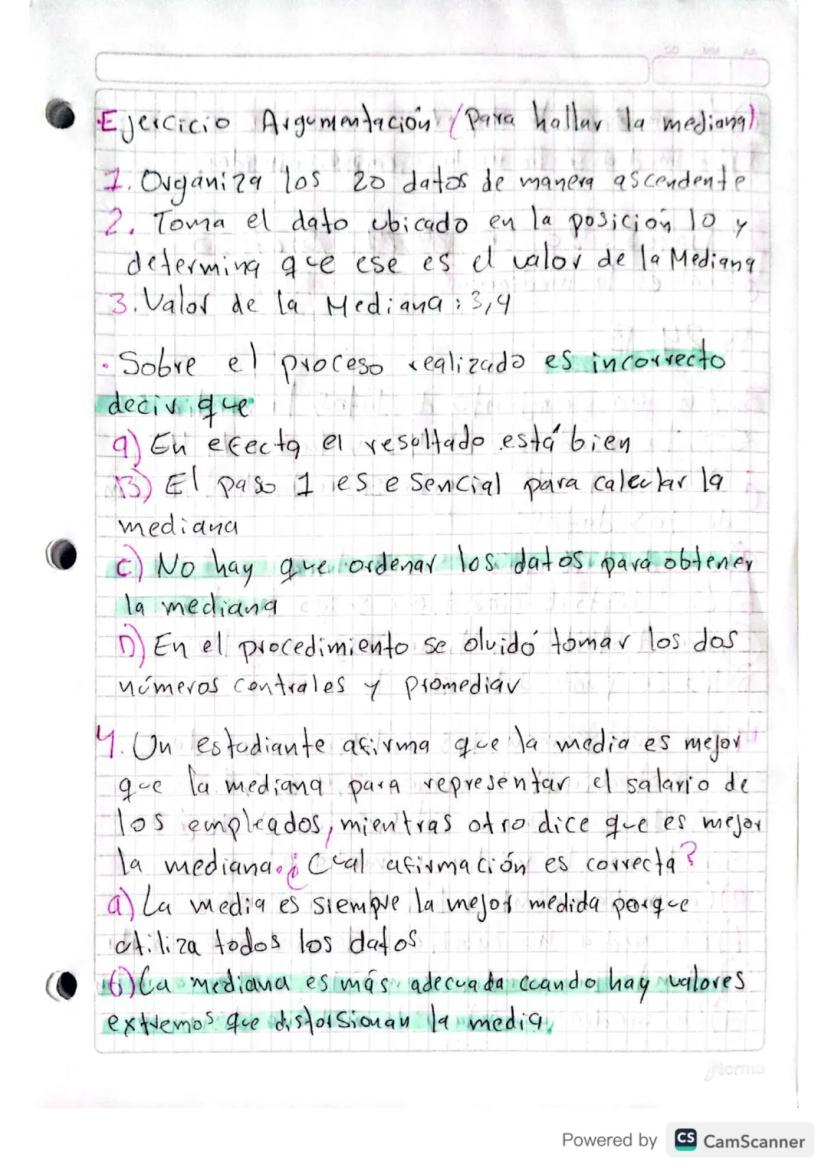 DD MM AA
·Ejercicio Argumentación (para hallar la mediana)
1. Organiza los 20 datos de manera ascendente
2. Toma el dato ubicado en la posición 10 y
determina que ese es el valor de la Mediana
3. Valor de la Mediana: 3,4
· Sobre el proceso realizado es incorrecto
decir que
a) En efecto el resultado está bien
B) El paso 1 es esencial para calcular la
mediana
c) No hay que ordenar los datos para obtener
la mediana
D) En el procedimiento se olvidó tomar los dos
números centrales y promediar
4. Un estudiante afirma que la media es mejor
que la mediana para representar el salario de
los empleados, mientras otro dice que es mejor
la mediana. ¿Cual afirmación es correcta?
a) La media es siempre la mejor medida porque
utiliza todos los datos
b) La mediana es más adecuada cuando hay valores
extremos que distorsionan la media.
Norma
Powered by CS CamScanner